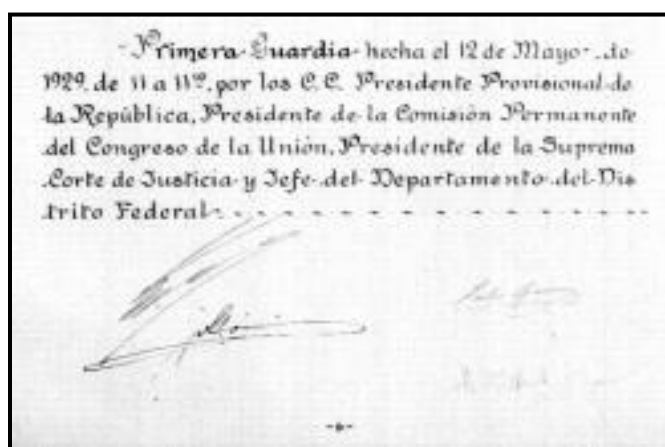 -Primera Guardia- hecha el 12 de Mayo- de
1929, de 11 a 11¹⁰, por los C.C. Presidente Provisional de
la República, Presidente de la Comisión Permanente
del Congreso de la Unión, Presidente de la Suprema
Corte de Justicia y Jefe del Departamento del Dis
trito Federal - - - - - - - - - - - - - -